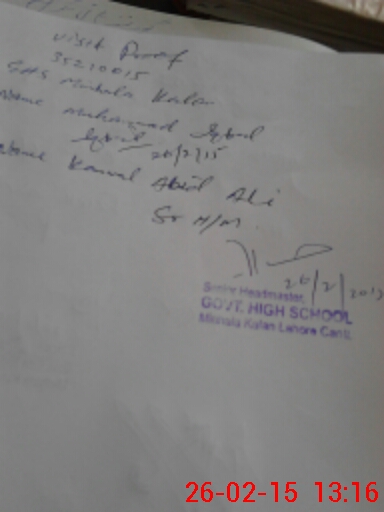 Visit Proof
35210015
GHS Minhala Kalan
Name Muhammad Iqbal
Iqbal 26/2/15
Name Kanwal Abid Ali
Sr H/M.
26/2/2015
Senior Headmaster,
GOVT. HIGH SCHOOL
Minhala Kalan Lahore Cantt.
26-02-15 13:16